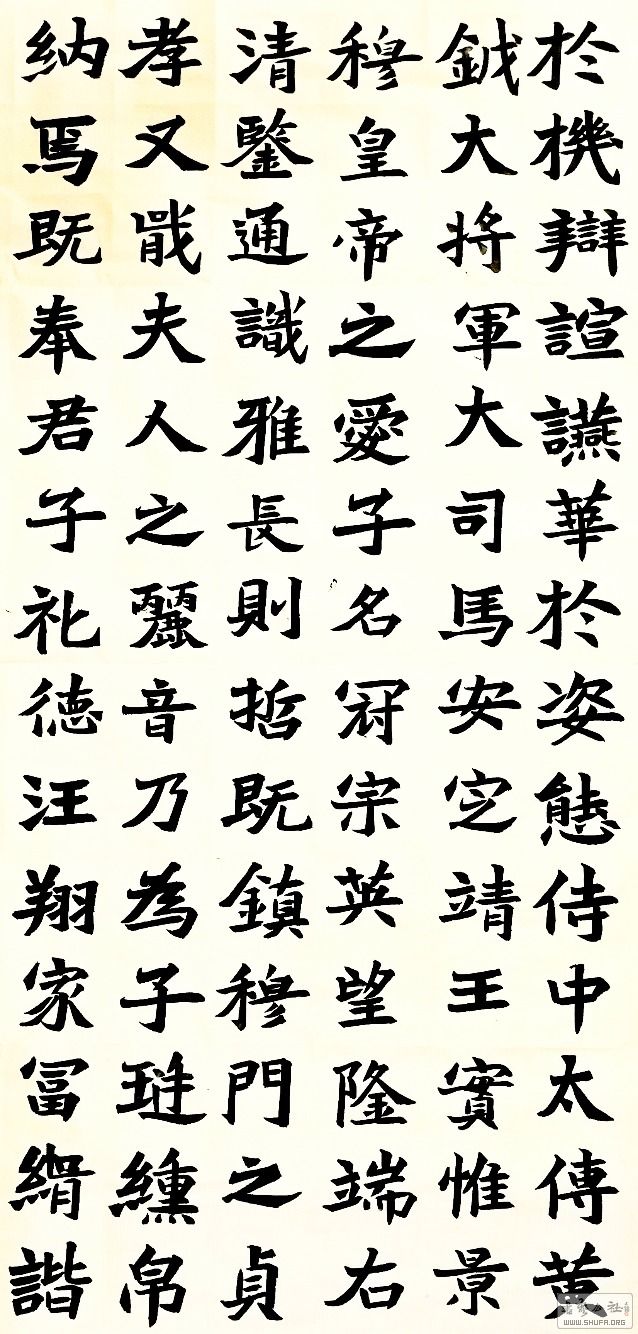 於機辯諠讌華於姿態侍中太傅黄
鉞大將軍大司馬安定靖王實惟景
穆皇帝之愛子名冠宗英望隆端右
清鑒通識雅長則哲既鎮穆門之貞
孝又戢夫人之麗音乃為子璡纁帛
納焉既奉君子礼徳汪翔家冨縃諧
WWW.SHUFA.ORG